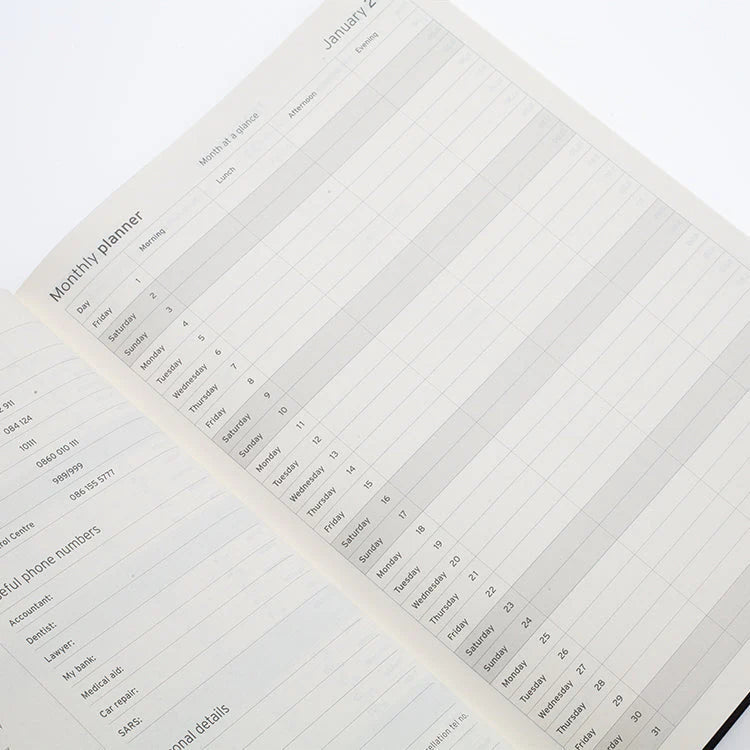 911
084 124
10111
0860 010 111
989/999
086 155 5777
Centre
phone numbers
Accountant:
Dentist:
Lawyer:
My bank:
Medical aid:
Car repair:
SARS:
details
tel no.
Monthly planner
Month at a glance
January 2
Day
Morning
Lunch
Afternoon
Evening
Friday 1
Saturday 2
Sunday 3
Monday 4
Tuesday 5
Wednesday 6
Thursday 7
Friday 8
Saturday 9
Sunday 10
Monday 11
Tuesday 12
Wednesday 13
Thursday 14
Friday 15
Saturday 16
Sunday 17
Monday 18
Tuesday 19
Wednesday 20
Thursday 21
Friday 22
Saturday 23
Sunday 24
Monday 25
Tuesday 26
Wednesday 27
Thursday 28
Friday 29
Saturday 30
31